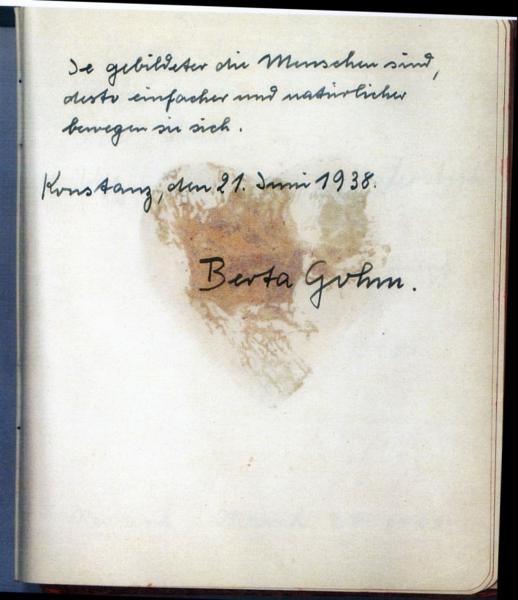 Je gebildeter die Menschen sind,
desto einfacher und natürlicher
bewegen sie sich.
Konstanz, den 21. Juni 1938.
Berta Gohm.